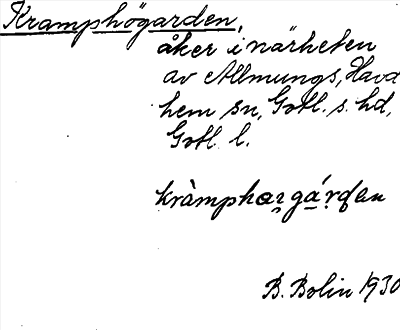 Kramphögarden,
åker i närheten
av Allmungs, Havd
hem sn, Gotl. s. hd,
Gotl. l.
kràmphəꝛgárdən
B. Bolin 1930